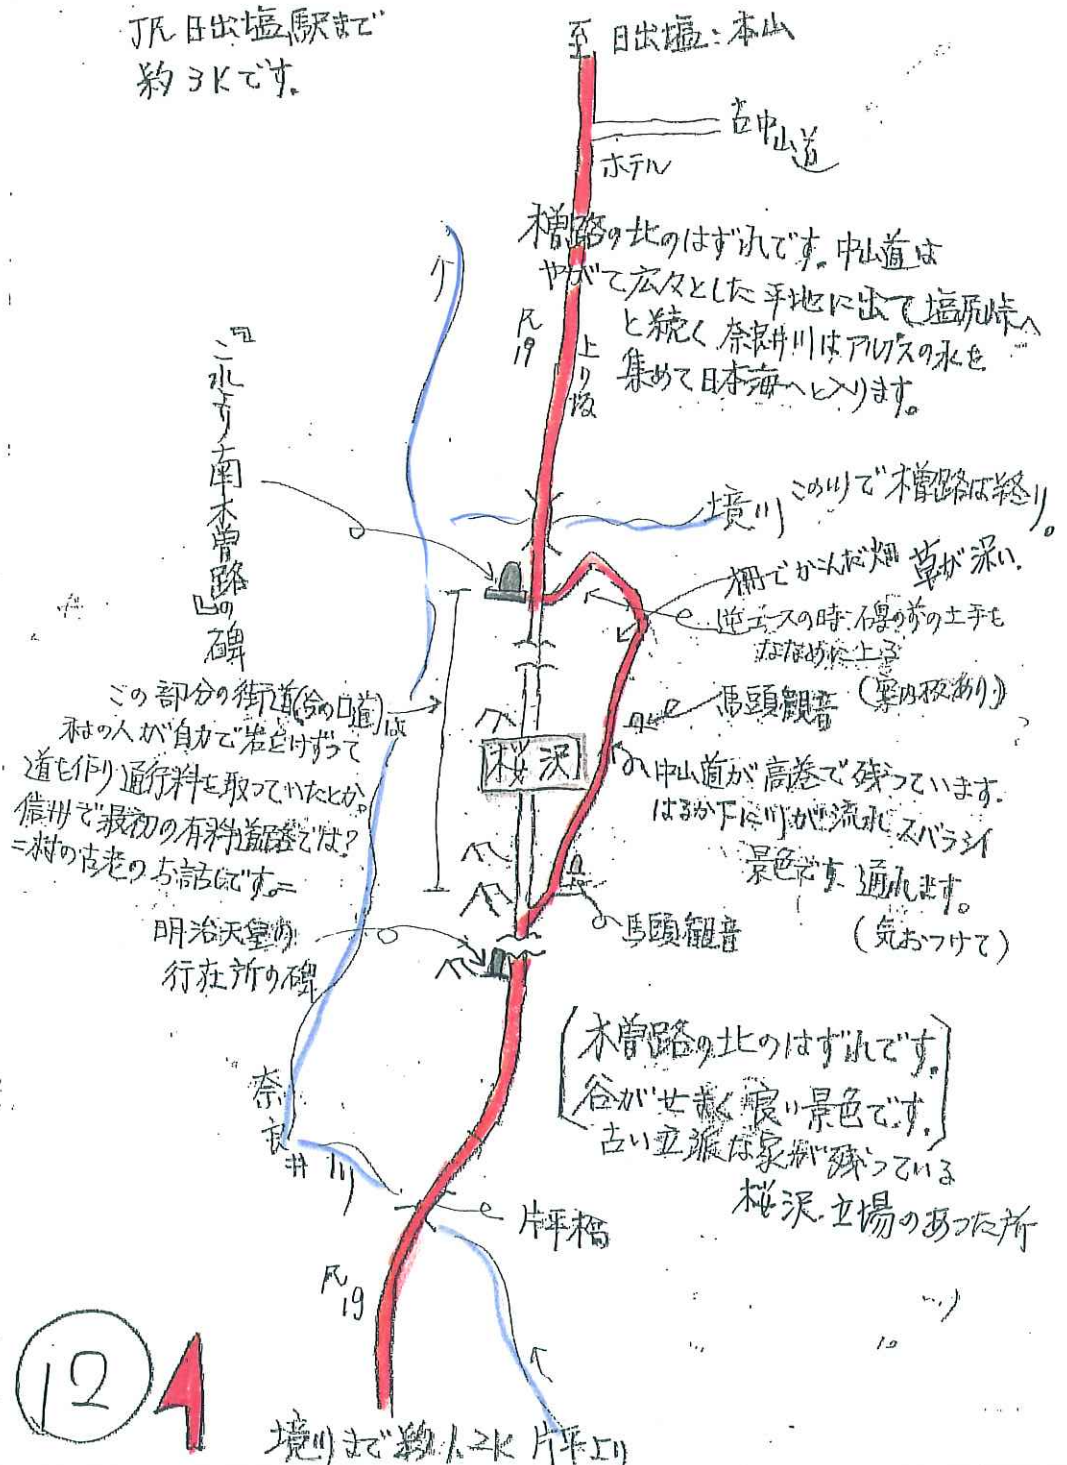 JR 日出塩駅まで
約3Kです。
至 日出塩:本山
古中山道
ホテル
木曽路の北のはずれです。中山道は
やがて広々とした平地に出て塩尻峠へ
と続く 奈良井川はアルプスの水を
集めて日本海へと入ります。
R19
上り坂
『これより南木曽路』の碑
境川 この川で木曽路は終り。
柵でかこんだ畑 草が深い。
逆コースの時:石碑の前の土手を
ななめに上る
(案内板あり)
馬頭観音
この部分の街道(今の口道)は
村の人が自力で岩をけずって
道を作り通行料を取っていたとか。
信州で最初の有料道路では?
=村の古老のお話しです。=
桜沢
中山道が高巻で残っています。
はるか下に川が流れ スバラシイ
景色です 通れます。
(気おつけて)
馬頭観音
明治天皇の
行在所の碑
木曽路の北のはずれです。
谷がせまく良い景色です。
古い立派な家が残っている
桜沢 立場のあった所
奈良井川
片平橋
R19
12
境川まで約1.2K 片平より